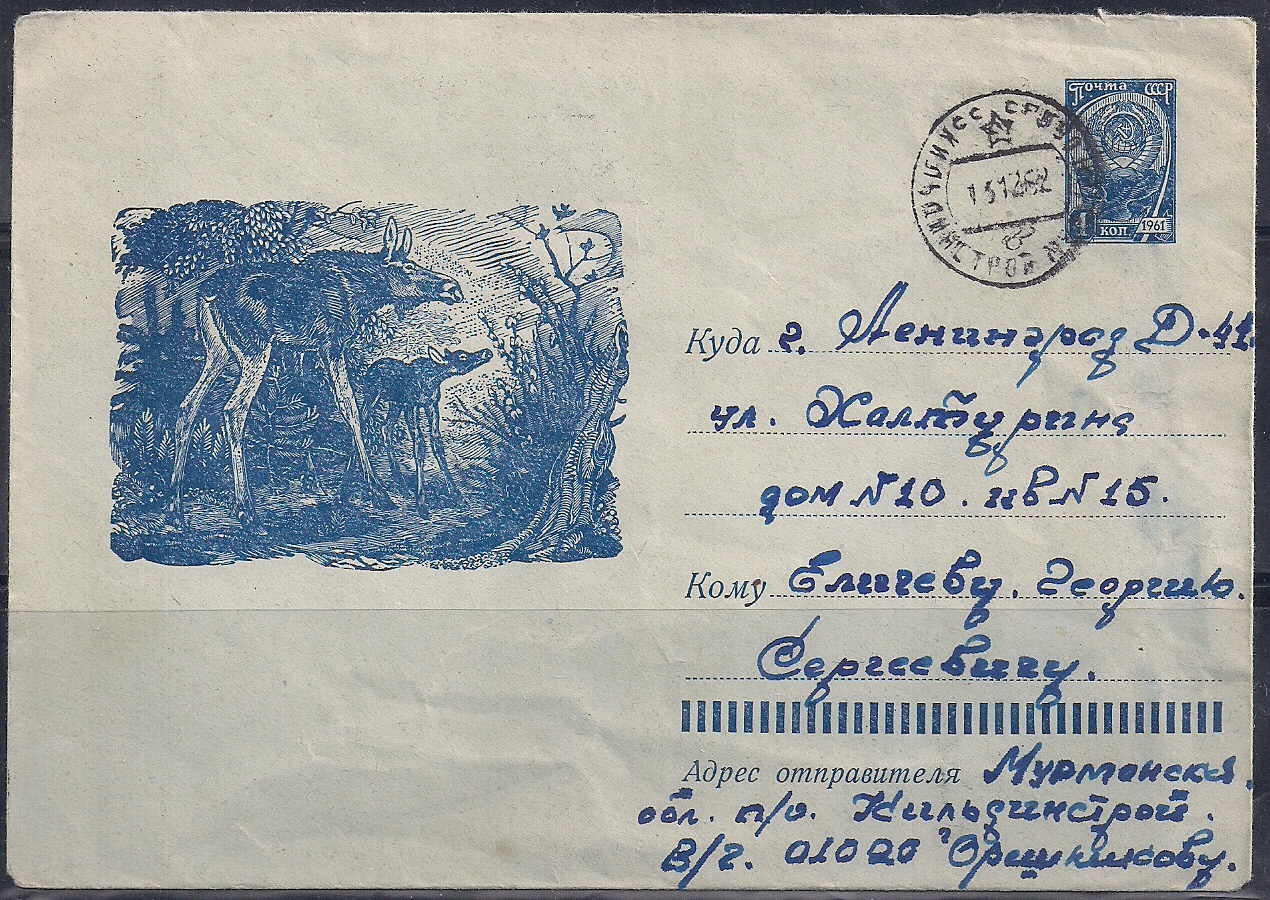 Почта СССР
1 коп 1961
131262
Куда г. Ленинград Д-41.
ул. Халтурина
дом №10. кв №15.
Кому Еличеву. Георгию.
Сергеевичу.
Адрес отправителя Мурманская.
обл. п/о. Кильдинстрой.
В/г. 01020 Орешникову.